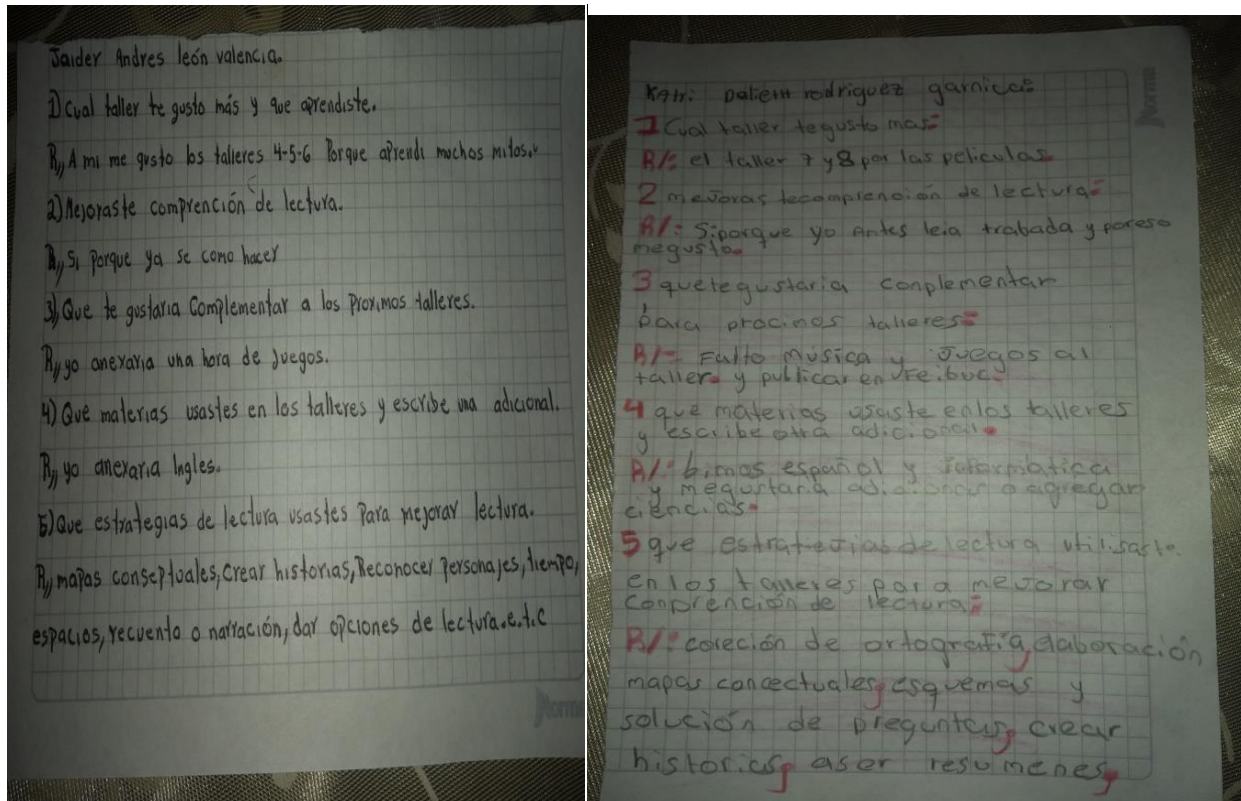 Jaider Andres león valencia.
1) Cual taller te gusto más y que aprendiste.
R,, A mi me gusto los talleres 4-5-6 Porque aprendi muchos mitos.
2) Mejoraste comprención de lectura.
R,, Si Porque ya se como hacer
3) Que te gustaria Complementar a los Proximos talleres.
R,, yo anexaria una hora de Juegos.
4) Que materias usastes en los talleres y escribe una adicional.
R,, yo anexaria Ingles.
5) Que estrategias de lectura usastes Para mejorar lectura.
R,, mapas conseptuales, Crear historias, Reconocer Personajes, tiempo,
espacios, recuento o narración, dar opciones de lectura.e.t.c
Norma
rodriguez garnica
1 Cual taller tegusto mas
R/: el taller 7 y 8 por las peliculas
2 mejoras tecomprención de lectura
R/: Siporque yo Antes leia trabada y poreso
megusto
3 quetegustaria conplementar
para procimos talleres
R/: Falto música y Juegos al
taller y publicar en Feibuc
4 que materias usaste enlos talleres
y escribe otra adicional
R/: bimos español y informática
y megustaria adicionar o agregar
ciencias
5 que estratejias de lectura utilisaste
enlos talleres para mejorar
conprención de lectura
R/: coreción de ortografía, elaboración
mapas concectuales, esquemas y
solución de preguntas, crear
historias, aser resumenes,
Norma